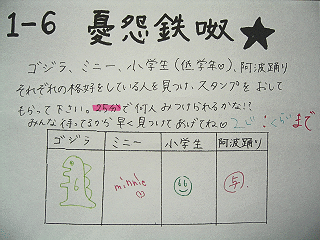 1-6 憂怨鉄呶★
ゴジラ、ミニー、小学生(低学年♡)、阿波踊り
それぞれの格好をしている人を見つけ、スタンプをおして
もらって下さい。25分で何人みつけられるかな!?
みんな待ってるから早く見つけてあげてね♡ まで
ゴジラ ミニー 小学生 阿波踊り
minnie♡ 与